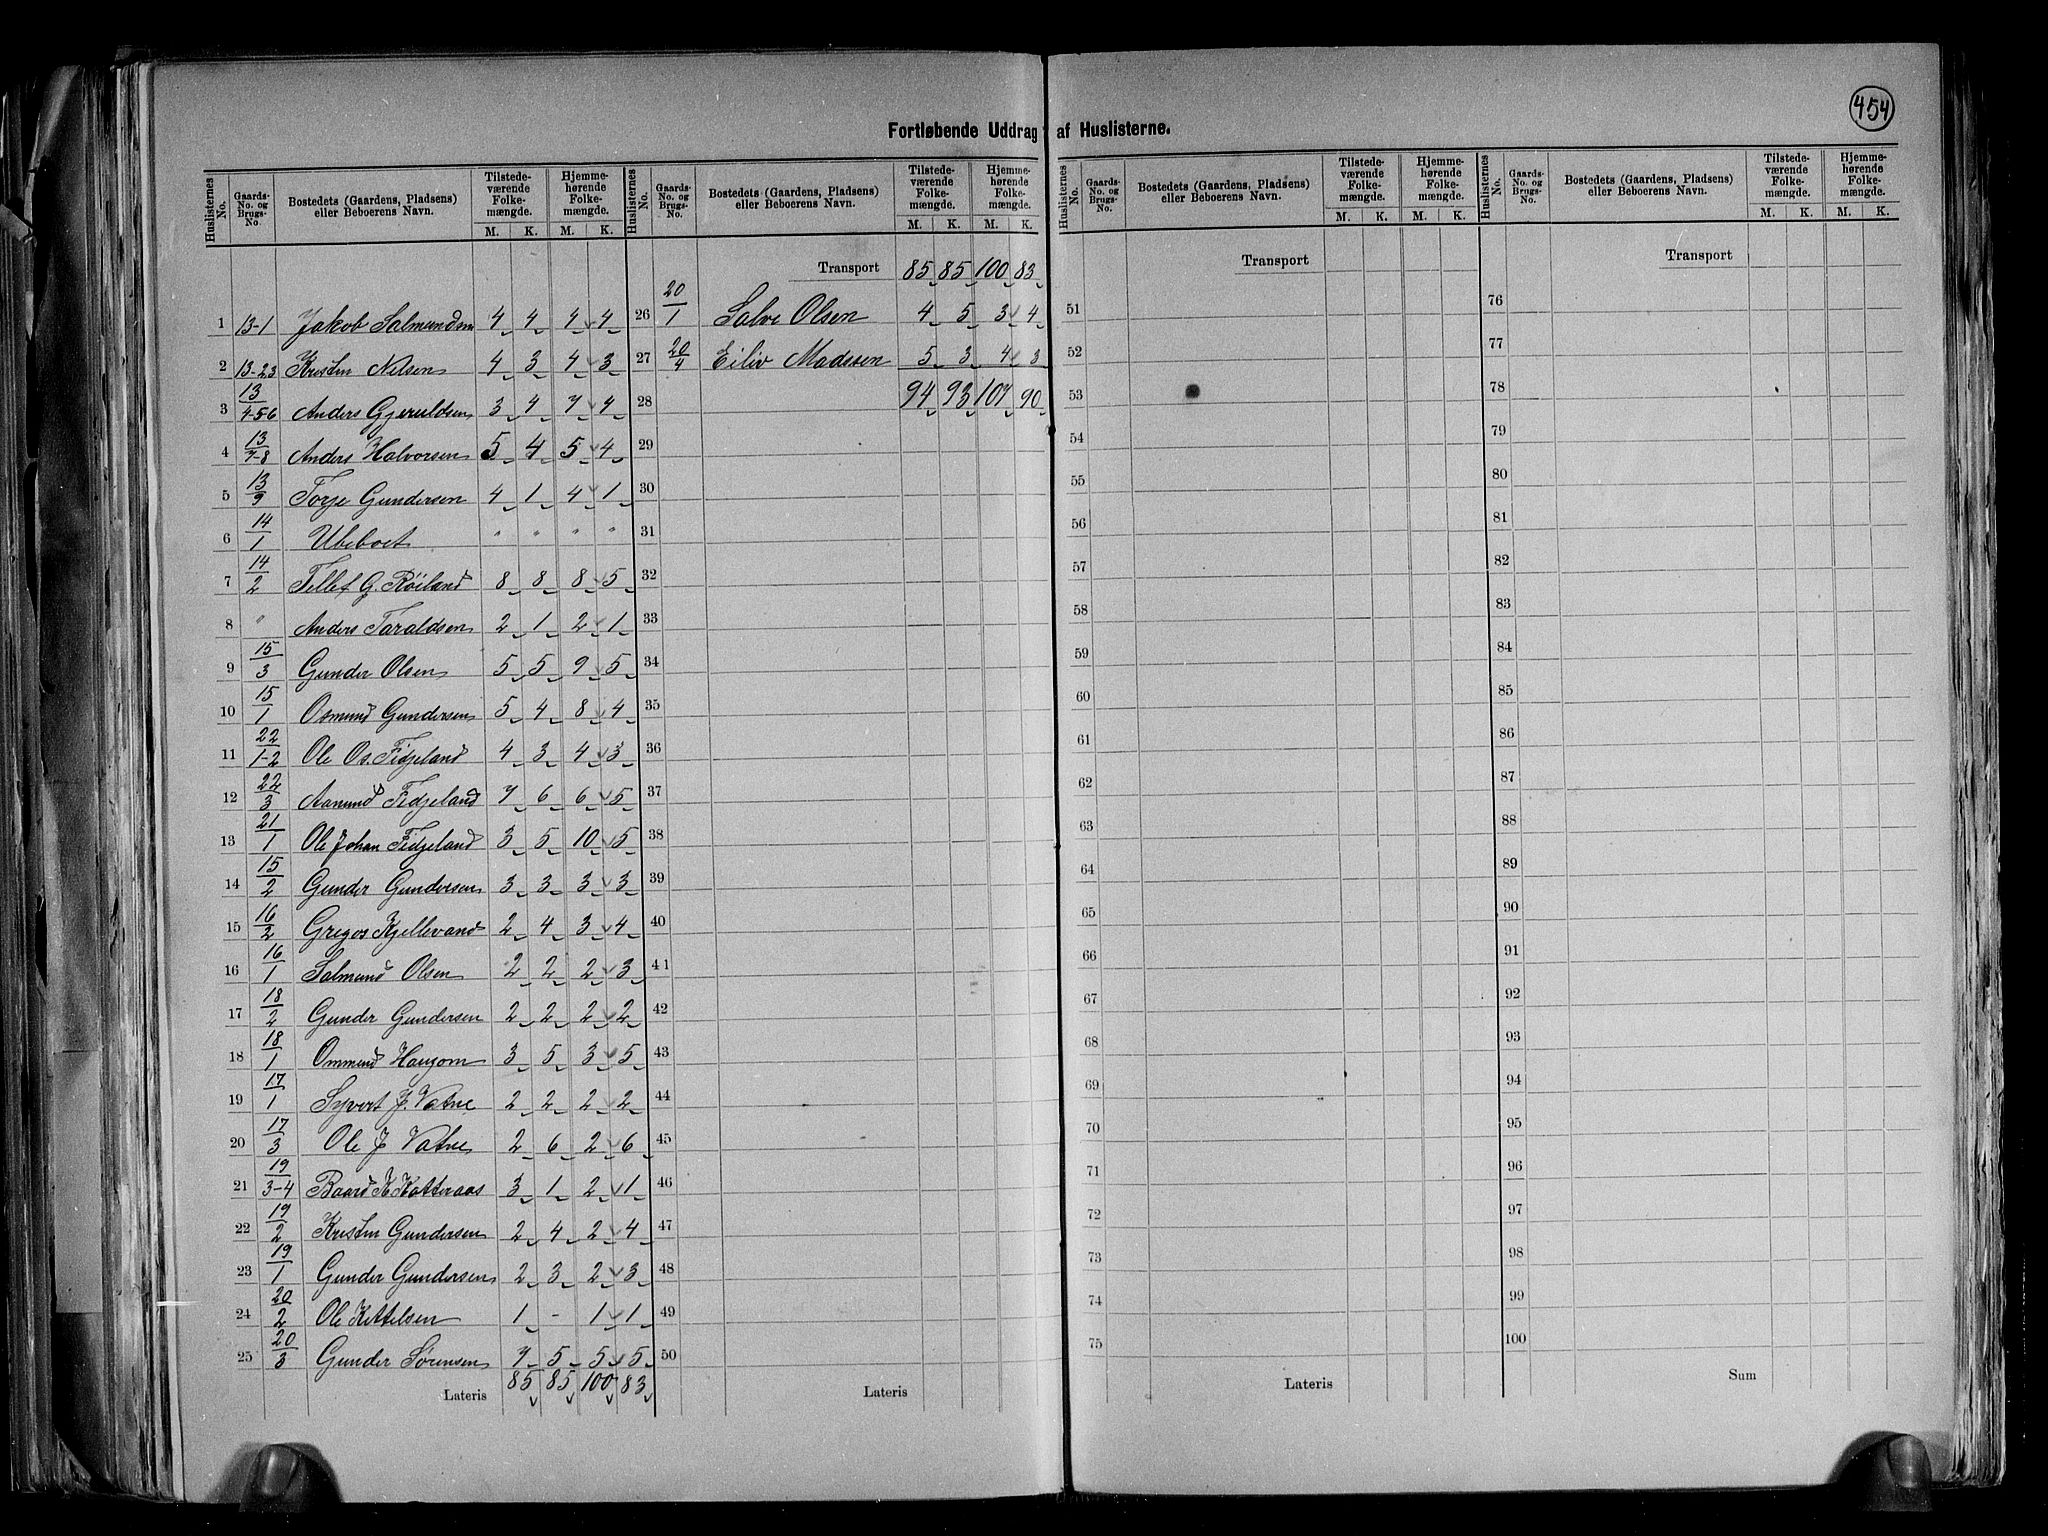 454
Fortløbende Uddrag af Huslisterne.
Huslisternes No. | Gaards-No. og Brugs-No. | Bostedets (Gaardens, Pladsens) eller Beboerens Navn. | Tilstede-værende Folke-mængde. M. K. | Hjemme-hørende Folke-mængde. M. K.
1 | 13-1 | Jakob Salmundsen | 4 | 4 | 4 | 4
2 | 13-23 | Kristen Nilsen | 4 | 3 | 4 | 3
3 | 13/4-5-6 | Anders Gjeruldsen | 3 | 4 | 7 | 4
4 | 13/7-8 | Anders Halvorsen | 5 | 4 | 5 | 4
5 | 13/9 | Torje Gundersen | 4 | 1 | 4 | 1
6 | 14/1 | Ubeboet | " | " | " | "
7 | 14/2 | Tellef G. Röiland | 8 | 8 | 8 | 5
8 | " | Anders Taraldsen | 2 | 1 | 2 | 1
9 | 15/3 | Gunder Olsen | 5 | 5 | 9 | 5
10 | 15/1 | Osmund Gundersen | 5 | 4 | 8 | 4
11 | 22/1-2 | Ole Os. Fidjeland | 4 | 3 | 4 | 3
12 | 22/3 | Aanund Fidjeland | 7 | 6 | 6 | 5
13 | 21/1 | Ole Johan Fidjeland | 3 | 5 | 10 | 5
14 | 15/2 | Gunder Gundersen | 3 | 3 | 3 | 3
15 | 16/2 | Gregos Kjellevand | 2 | 4 | 3 | 4
16 | 16/1 | Salmund Olsen | 2 | 2 | 2 | 3
17 | 18/2 | Gunder Gundersen | 2 | 2 | 2 | 2
18 | 18/1 | Ommund Haugom | 3 | 5 | 3 | 5
19 | 17/1 | Syvert J. Vatne | 2 | 2 | 2 | 2
20 | 17/3 | Ole J Vatne | 2 | 6 | 2 | 6
21 | 19/3-4 | Baard K Katteraas | 3 | 1 | 2 | 1
22 | 19/2 | Kristen Gundersen | 2 | 4 | 2 | 4
23 | 19/1 | Gunder Gundersen | 2 | 3 | 2 | 3
24 | 20/2 | Ole Kittelsen | 1 | - | 1 | 1
25 | 20/3 | Gunder Sørensen | 7 | 5 | 5 | 5
Lateris | 85 | 85 | 100 | 83
Huslisternes No. | Gaards-No. og Brugs-No. | Bostedets (Gaardens, Pladsens) eller Beboerens Navn. | Tilstede-værende Folke-mængde. M. K. | Hjemme-hørende Folke-mængde. M. K.
Transport | 85 | 85 | 100 | 83
26 | 20/1 | Salve Olsen | 4 | 5 | 3 | 4
27 | 20/4 | Eiliv Madssen | 5 | 3 | 4 | 3
28 | 94 | 93 | 107 | 90
29
30
31
32
33
34
35
36
37
38
39
40
41
42
43
44
45
46
47
48
49
50
Lateris
Huslisternes No. | Gaards-No. og Brugs-No. | Bostedets (Gaardens, Pladsens) eller Beboerens Navn. | Tilstede-værende Folke-mængde. M. K. | Hjemme-hørende Folke-mængde. M. K.
Transport
51
52
53
54
55
56
57
58
59
60
61
62
63
64
65
66
67
68
69
70
71
72
73
74
75
Lateris
Huslisternes No. | Gaards-No. og Brugs-No. | Bostedets (Gaardens, Pladsens) eller Beboerens Navn. | Tilstede-værende Folke-mængde. M. K. | Hjemme-hørende Folke-mængde. M. K.
Transport
76
77
78
79
80
81
82
83
84
85
86
87
88
89
90
91
92
93
94
95
96
97
98
99
100
Sum